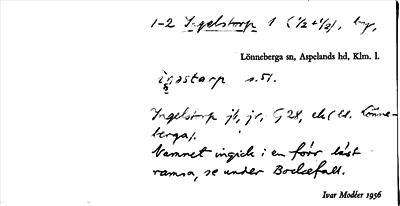 1-2 Ingelstorp 1 (1/2+1/2), by,
Lönneberga sn, Aspelands hd, Klm. l.
s. 51.
Ingelstorp jb, jr, G 28, ek (bl. Lönne-
berga).
Namnet ingick i en förr läst
ramsa, se under Bockefall.
Ivar Modéer 1956